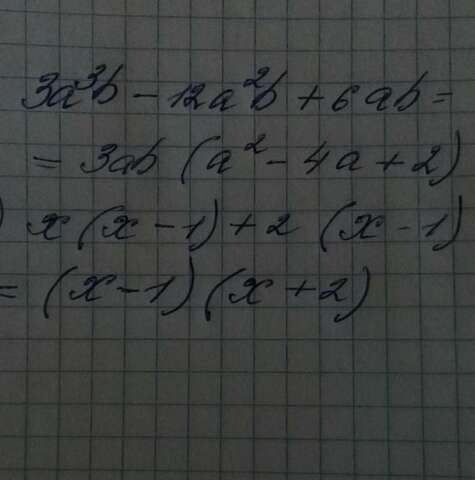 3a³b - 12a²b + 6ab =
= 3ab (a² - 4a + 2)
) x (x - 1) + 2 (x - 1)
= (x - 1) (x + 2)